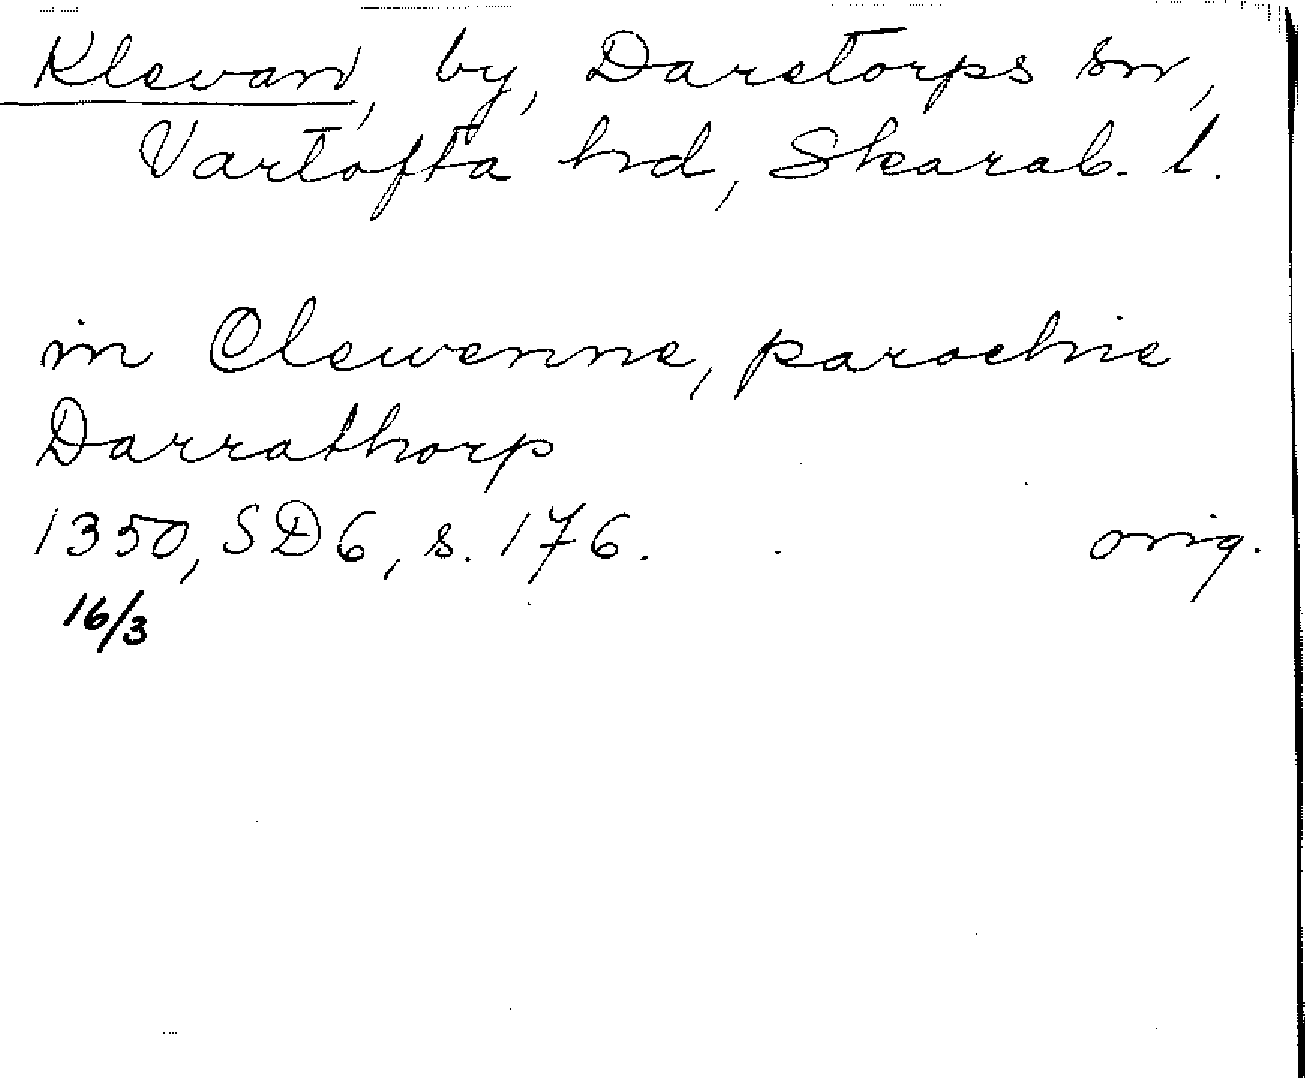 Klevan, by, Daretorps sn,
Vartofta hd, Skarab. l.
in Clewenne, parochie
Darrathorp
1350, SD6, s. 176. orig.
16/3